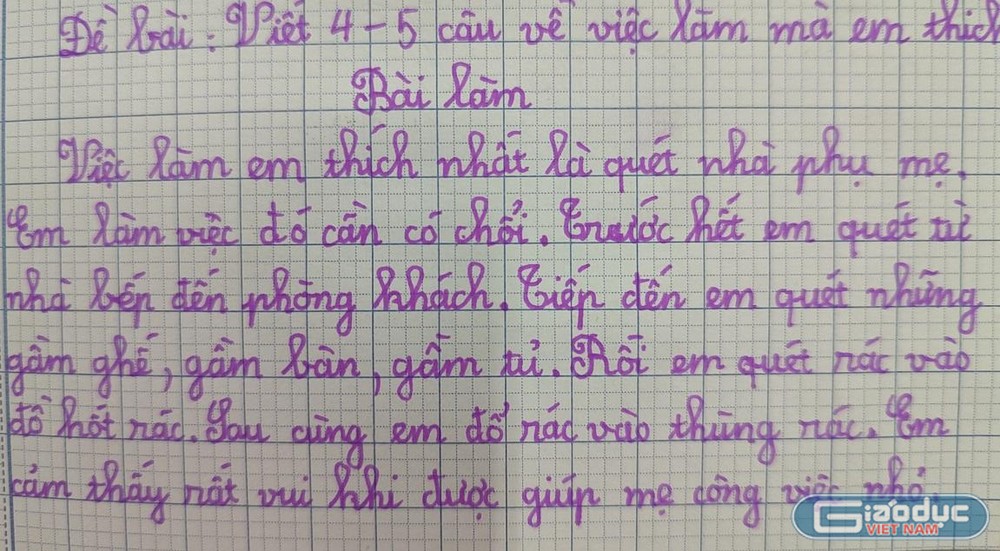 Đề bài: Viết 4-5 câu về việc làm mà em thích
Bài làm
Việc làm em thích nhất là quét nhà phụ mẹ.
Em làm việc đó cần có chổi. Trước hết em quét từ
nhà bếp đến phòng khách. Tiếp đến em quét những
gầm ghế, gầm bàn, gầm tủ. Rồi em quét rác vào
đồ hốt rác. Sau cùng em đổ rác vào thùng rác. Em
cảm thấy rất vui khi được giúp mẹ công việc nhỏ.
Giáo dục
VIỆT NAM